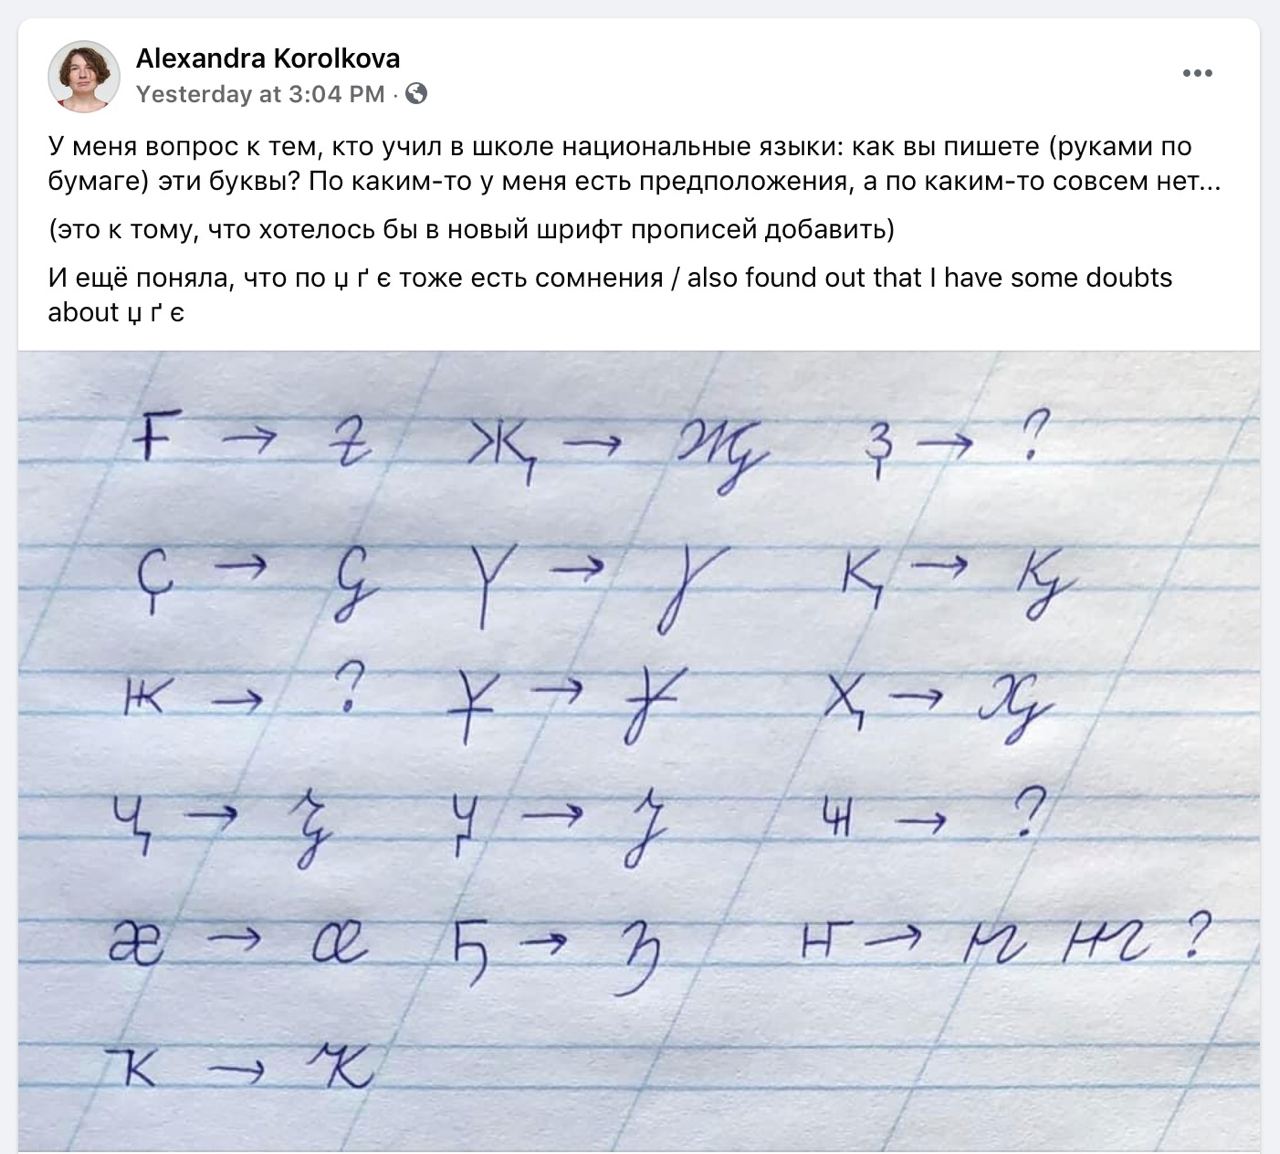 Alexandra Korolkova
Yesterday at 3:04 PM ·
У меня вопрос к тем, кто учил в школе национальные языки: как вы пишете (руками по
бумаге) эти буквы? По каким-то у меня есть предположения, а по каким-то совсем нет...
(это к тому, что хотелось бы в новый шрифт прописей добавить)
И ещё поняла, что по џ ґ є тоже есть сомнения / also found out that I have some doubts
about џ ґ є
ғ → ғ җ → җ ҙ → ?
ҫ → ҫ ү → ү қ → қ
ҝ → ? ұ → ұ ҳ → ҳ
ҷ → ҷ ӌ → ӌ ҹ → ?
ӕ → ӕ ҕ → ҕ ҥ → ҥ ҥ ?
ҡ → ҡ